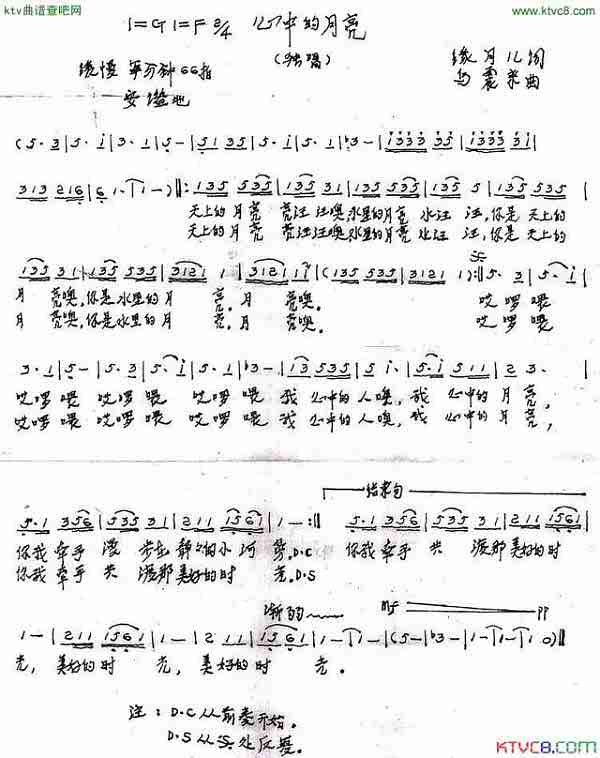 ktv曲谱查吧网
www.ktvc8.com
1=G 1=F 2/4 心中的月亮
(独唱)
缓慢 每分钟66拍
安谧地
缘月儿词
乌震来曲
(5·3|5·i|3·1|5-|5135|5·i|5·1|♭3-|1333 35|1333 31|
313 216|6 1·|1-)‖:135 535|135 31|135 535|135 5|135 535|
天上的月亮 亮汪汪噢水里的月亮 水汪 汪,你是 天上的
天上的月亮 亮汪汪噢水里的月亮 水汪 汪,你是 天上的
135 31|135 535|3121 1|3121 1i|(135 535|3121 1):‖5·3|5·i|
月 亮噢,你是水里的月 亮.月 亮噢. 哎啰喂
月 亮噢,你是水里的月 亮.月 亮噢. 哎啰喂
3·1|5-|5·3|5·i|5·1|♭3-|13 535|5 i·|5·i 511|2 3·|
哎啰喂 哎啰喂 哎啰喂 我 心中的人噢,我 心中的月亮,
哎啰喂 哎啰喂 哎啰喂 我 心中的人噢,我 心中的月亮,
结束句
5·1 356|535 31|211 1561|1-:‖ 5·1 356|535 31|211 1561|
你我 牵手 漫 步在 静静的小河 旁.D.C 你我 牵手 共 渡那美好的时
你我 牵手 共 渡那美好的时 光.D.S
渐弱
mf pp
1-|211 1561|1-|211|1561|1-|1-|(5-|♭3-|1-|1-|1-|10)‖
光, 美好的时 光, 美好的时 光.
注:D.C从前奏开始.
D.S从𝄋处反复.
KTVC8.com